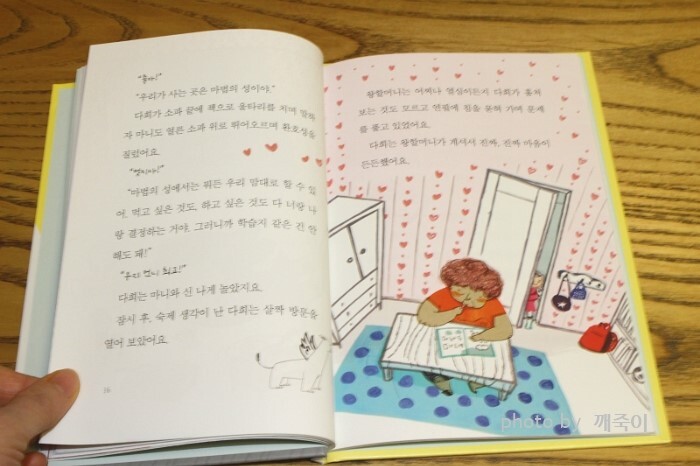 "좋아!"
"우리가 사는 곳은 마법의 성이야."
다희가 소파 끝에 책으로 울타리를 치며 말하
자 마니도 얼른 소파 위로 뛰어오르며 환호성을
질렀어요.
"멋지다!"
"마법의 성에서는 뭐든 우리 맘대로 할 수 있
어. 먹고 싶은 것도, 하고 싶은 것도 다 너랑 나
랑 결정하는 거야. 그러니까 학습지 같은 건 안
해도 돼!"
"우리 언니 최고!"
다희는 마니와 신 나게 놀았지요.
잠시 후, 숙제 생각이 난 다희는 살짝 방문을
열어 보았어요.
16
왕할머니는 어찌나 열심이든지 다희가 훔쳐
보는 것도 모르고 연필에 침을 묻혀 가며 문제
를 풀고 있었어요.
다희는 왕할머니가 계셔서 진짜, 진짜 마음이
든든했어요.
photo by 깨죽이